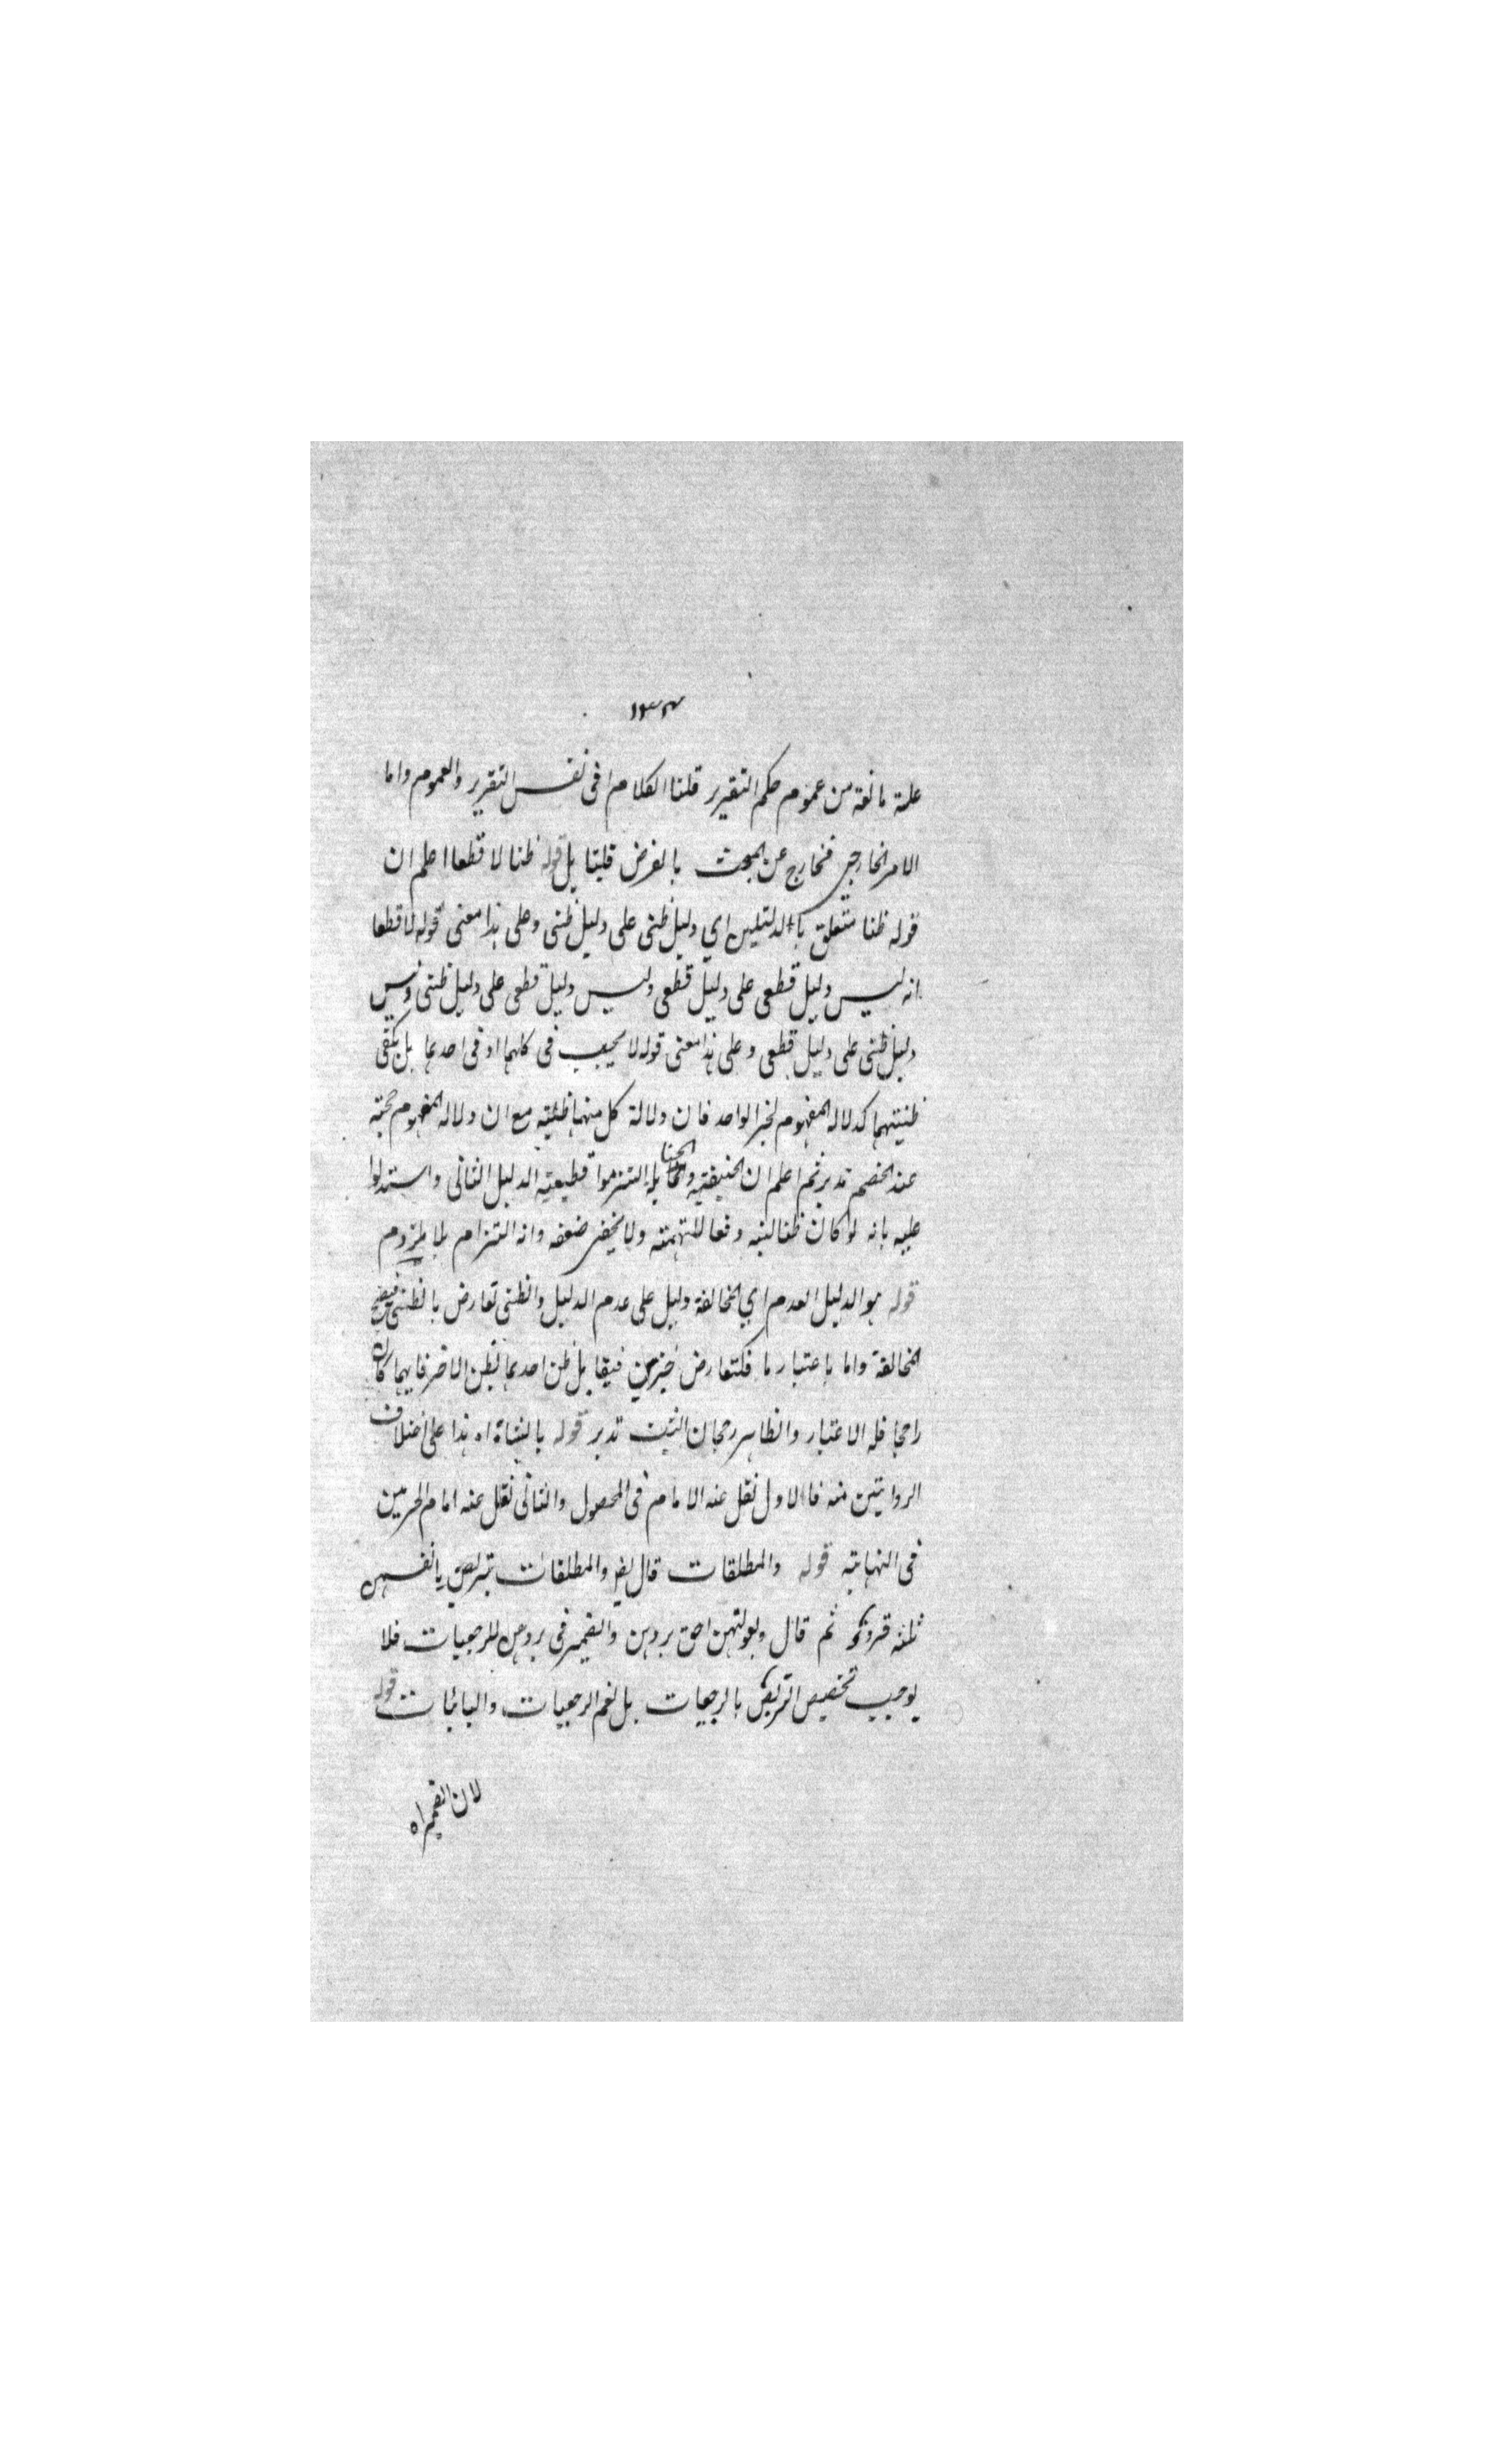 ١٣٣
علة مانعة من عموم حكم التقرير قلنا الكلام فى نفس التقرير والعموم واما
الامر الخارجي فخارج عن المبحث بالفرض قلنا بل قوله ظنا لا قطعا اعلم ان
قوله ظنا متعلق بالدليلين اي دليل ظنى على دليل ظنى وعلى هذا معنى قوله لا قطعا
انه ليس دليل قطعى على دليل قطعى وليس دليل قطعى على دليل ظنى وليس
دليل ظنى على دليل قطعى وعلى هذا معنى قوله لا يجب فى كلهما او فى احدهما بل يكفى
ظنيتهما كدلالة المفهوم لخبر الواحد فان دلالة كل منهما ظنية مع ان دلالة المفهوم حجة
عند الخصم تدبر ثم اعلم ان الحنيفية والحنابلة التزموا قطيعية الدليل الثانى واستدلوا
عليه بانه لو كان ظنا لنبه دفعا للتهمة ولا يخفى ضعفه وانه التزام بلا ملزوم
قوله هو الدليل العدم اي المخالفة دليل على عدم الدليل والظنى تعارض بالظنى
المخالفة واما باعتبار ما فلتعارض خبرين فيقابل ظن احدهما لظن الاخر فايهما كان
راجحا فله الاعتبار والظاهر رجحان تدبر قوله بالبشاة اه هذا على اختلاف
الروايتين منه فالاول نقل عنه الامام فى المحصول والثانى نقل عنه امام الحرمين
فى النهاية قوله والمطلقات قال والمطلقات يتربصن بانفسهن
ثلثه قروء ثم قال وبعولتهن احق بردهن والضمير فى بردهن للرجعيات فلا
يوجب تخصيص التربص بالرجعيات بل لعم الرجعيات والبائنات قوله
لان الضمير اه